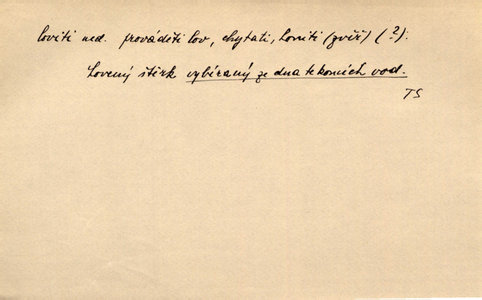 loviti ned. prováděti lov, chytati, honiti (zvěř) (?):
Lovený štěrk vybíraný ze dna tekoucích vod.
TS